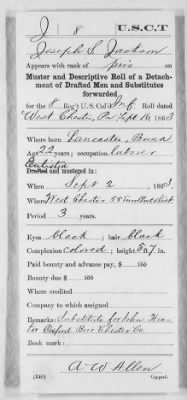 J 8 U.S.C.T
Joseph S. Jackson
Appears with rank of priv on
Muster and Descriptive Roll of a Detachment of Drafted Men and Substitutes
forwarded
for the 8 Reg't U.S. Col'd Inf. Roll dated
West Chester, Pa Sept 16, 1863
Where born Lancaster, Penna
Age 22 years; occupation Laborer
Enlisted
Drafted and mustered in:
When Sept 2, 1863
Where West Chester
Period 3 years.
Eyes black; hair black
Complexion colored; height 5 ft 7 in.
Paid bounty and advance pay, $ 100
Bounty due $ 100
Where credited
Company to which assigned
Remarks: Substitute for John
Oxford Boro Chester Co.
Book mark:
A W Allen
(340) Copyist.